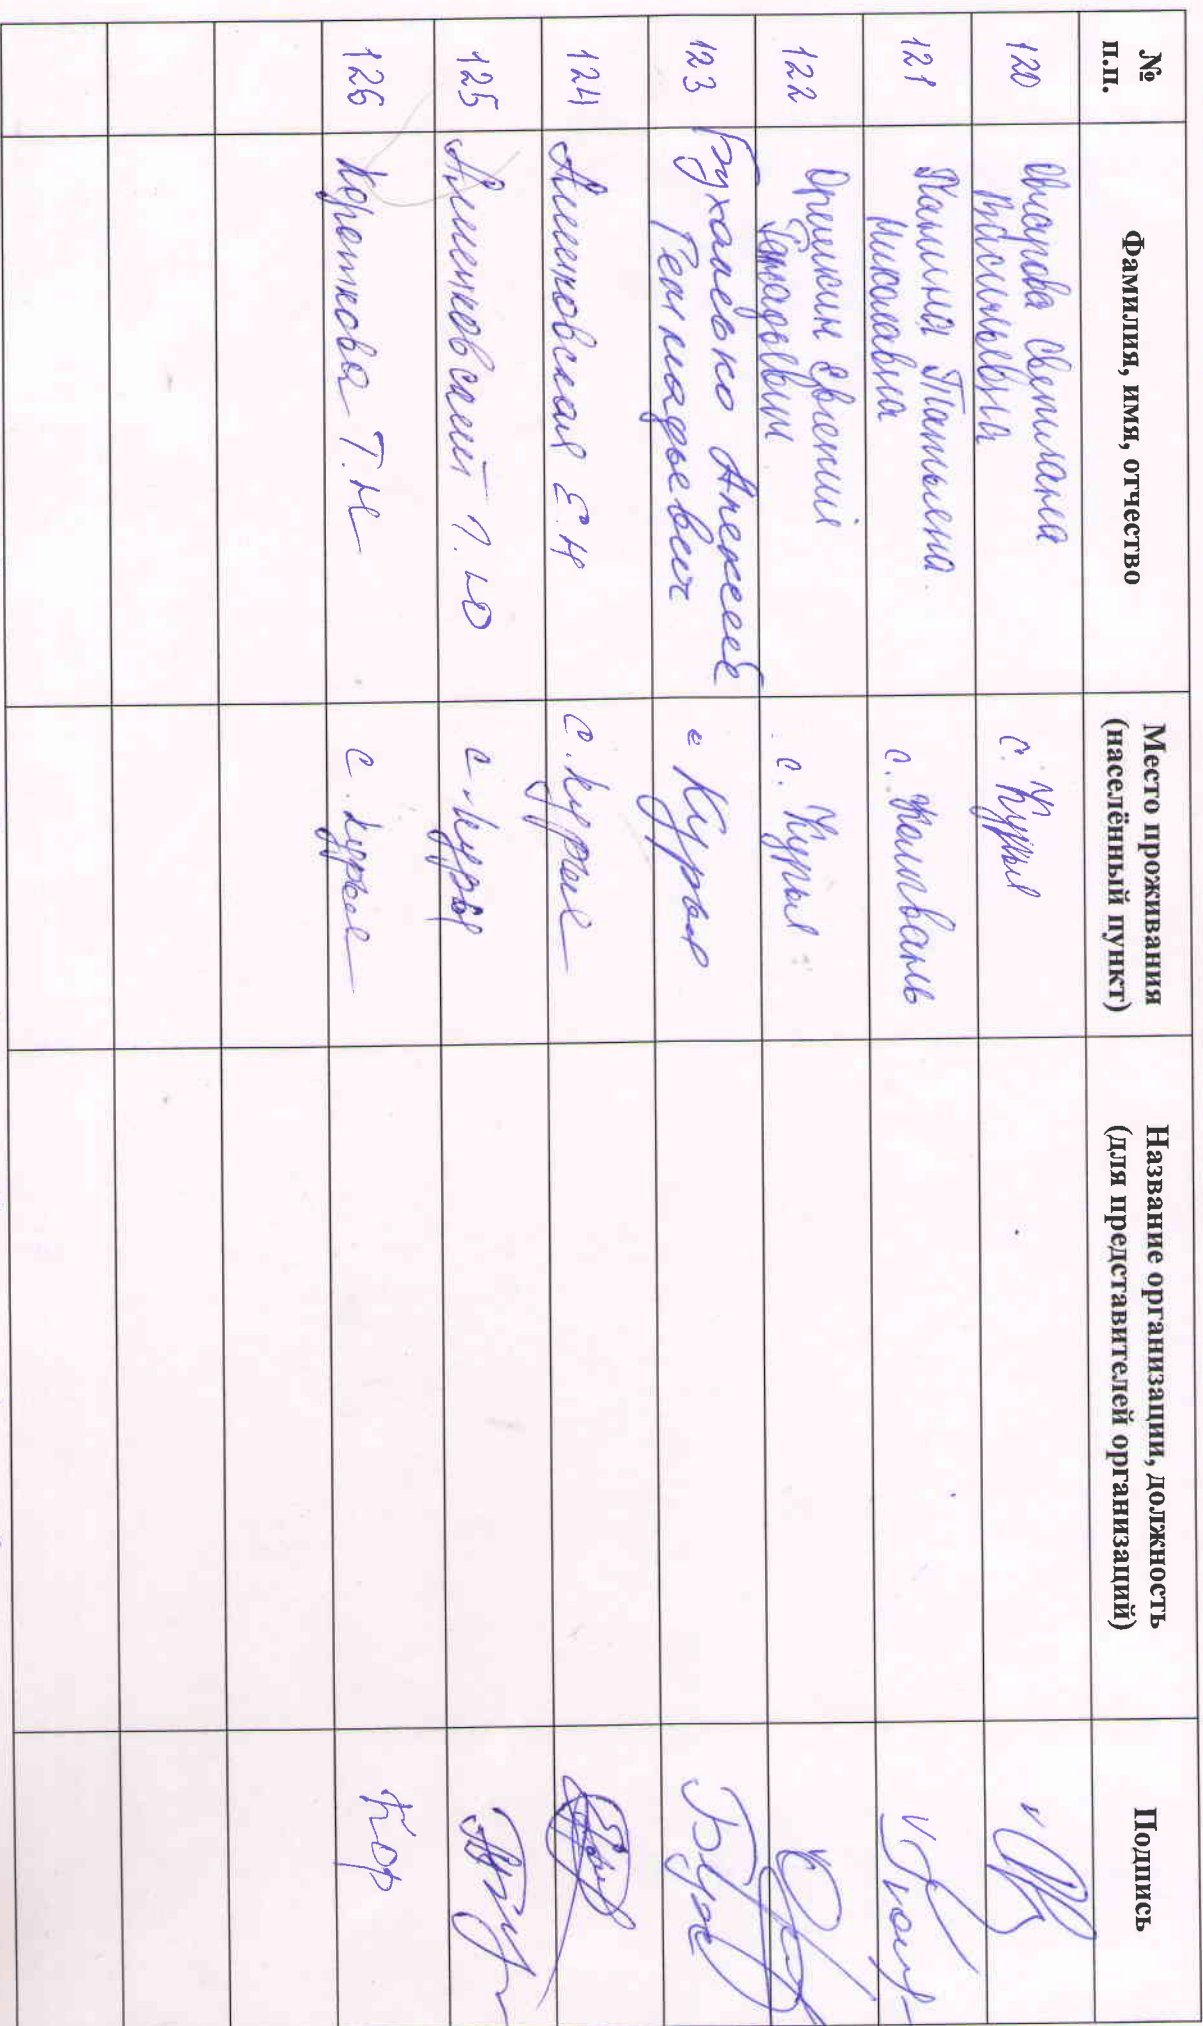 №
п.п.
Фамилия, имя, отчество
Место проживания
(населённый пункт)
Название организации, должность
(для представителей организаций)
Подпись
120
Светлана
Васильевна
с. Курья
121
Татьяна
Николаевна
с. Колывань
122
Орешкин Евгений
Геннадьевич
с. Курья
123
Буханько Алексей
Геннадьевич
с Курья
124
Е.Н
с. Курья
125
с. Курья
126
Короткова Т.Н
с. Курья
Кор